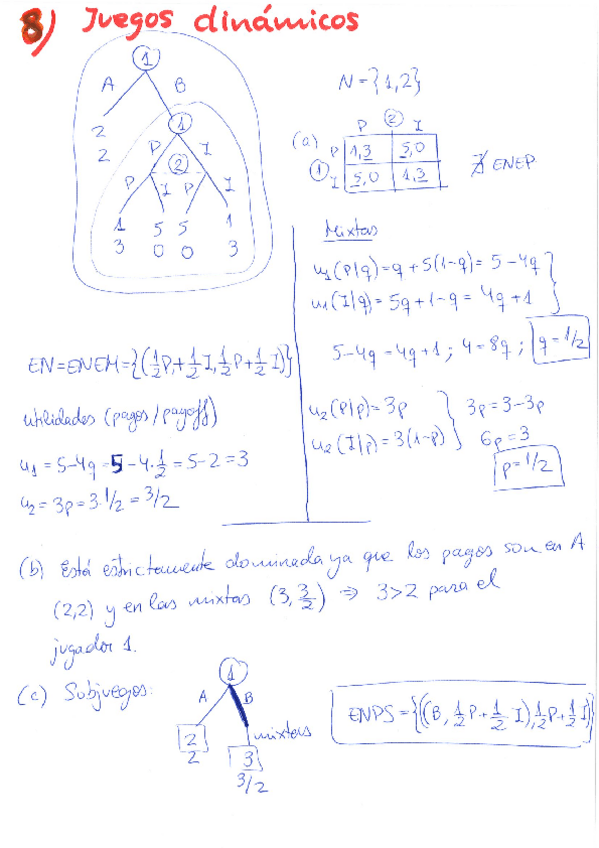 8) Juegos dinámicos
1
A B
2
2
1
P I
2
P I P I
1 5 5 1
3 0 0 3
N = {1,2}
(a)
2
P I
1 P 1,3 5,0
I 5,0 1,3
∄ ENEP
Mixtas
u₁(P|q) = q + 5(1-q) = 5 - 4q
u₁(I|q) = 5q + 1 - q = 4q + 1
5-4q = 4q+1 ; 4 = 8q ; q = 1/2
u₂(P|p) = 3p
u₂(I|p) = 3(1-p)
3p = 3-3p
6p = 3
p = 1/2
EN = ENEM = {(½P + ½I, ½P + ½I)}
utilidades (pagos / payoff)
u₁ = 5-4q = 5-4·½ = 5-2 = 3
u₂ = 3p = 3·1/2 = 3/2
(b) Está estrictamente dominada ya que los pagos son en A
(2,2) y en las mixtas (3, 3/2) ⇒ 3>2 para el
jugador 1.
(c) Subjuegos:
1
A B
mixtas
2
2
3
3/2
ENPS = {((B, ½P + ½I), ½P + ½I)}